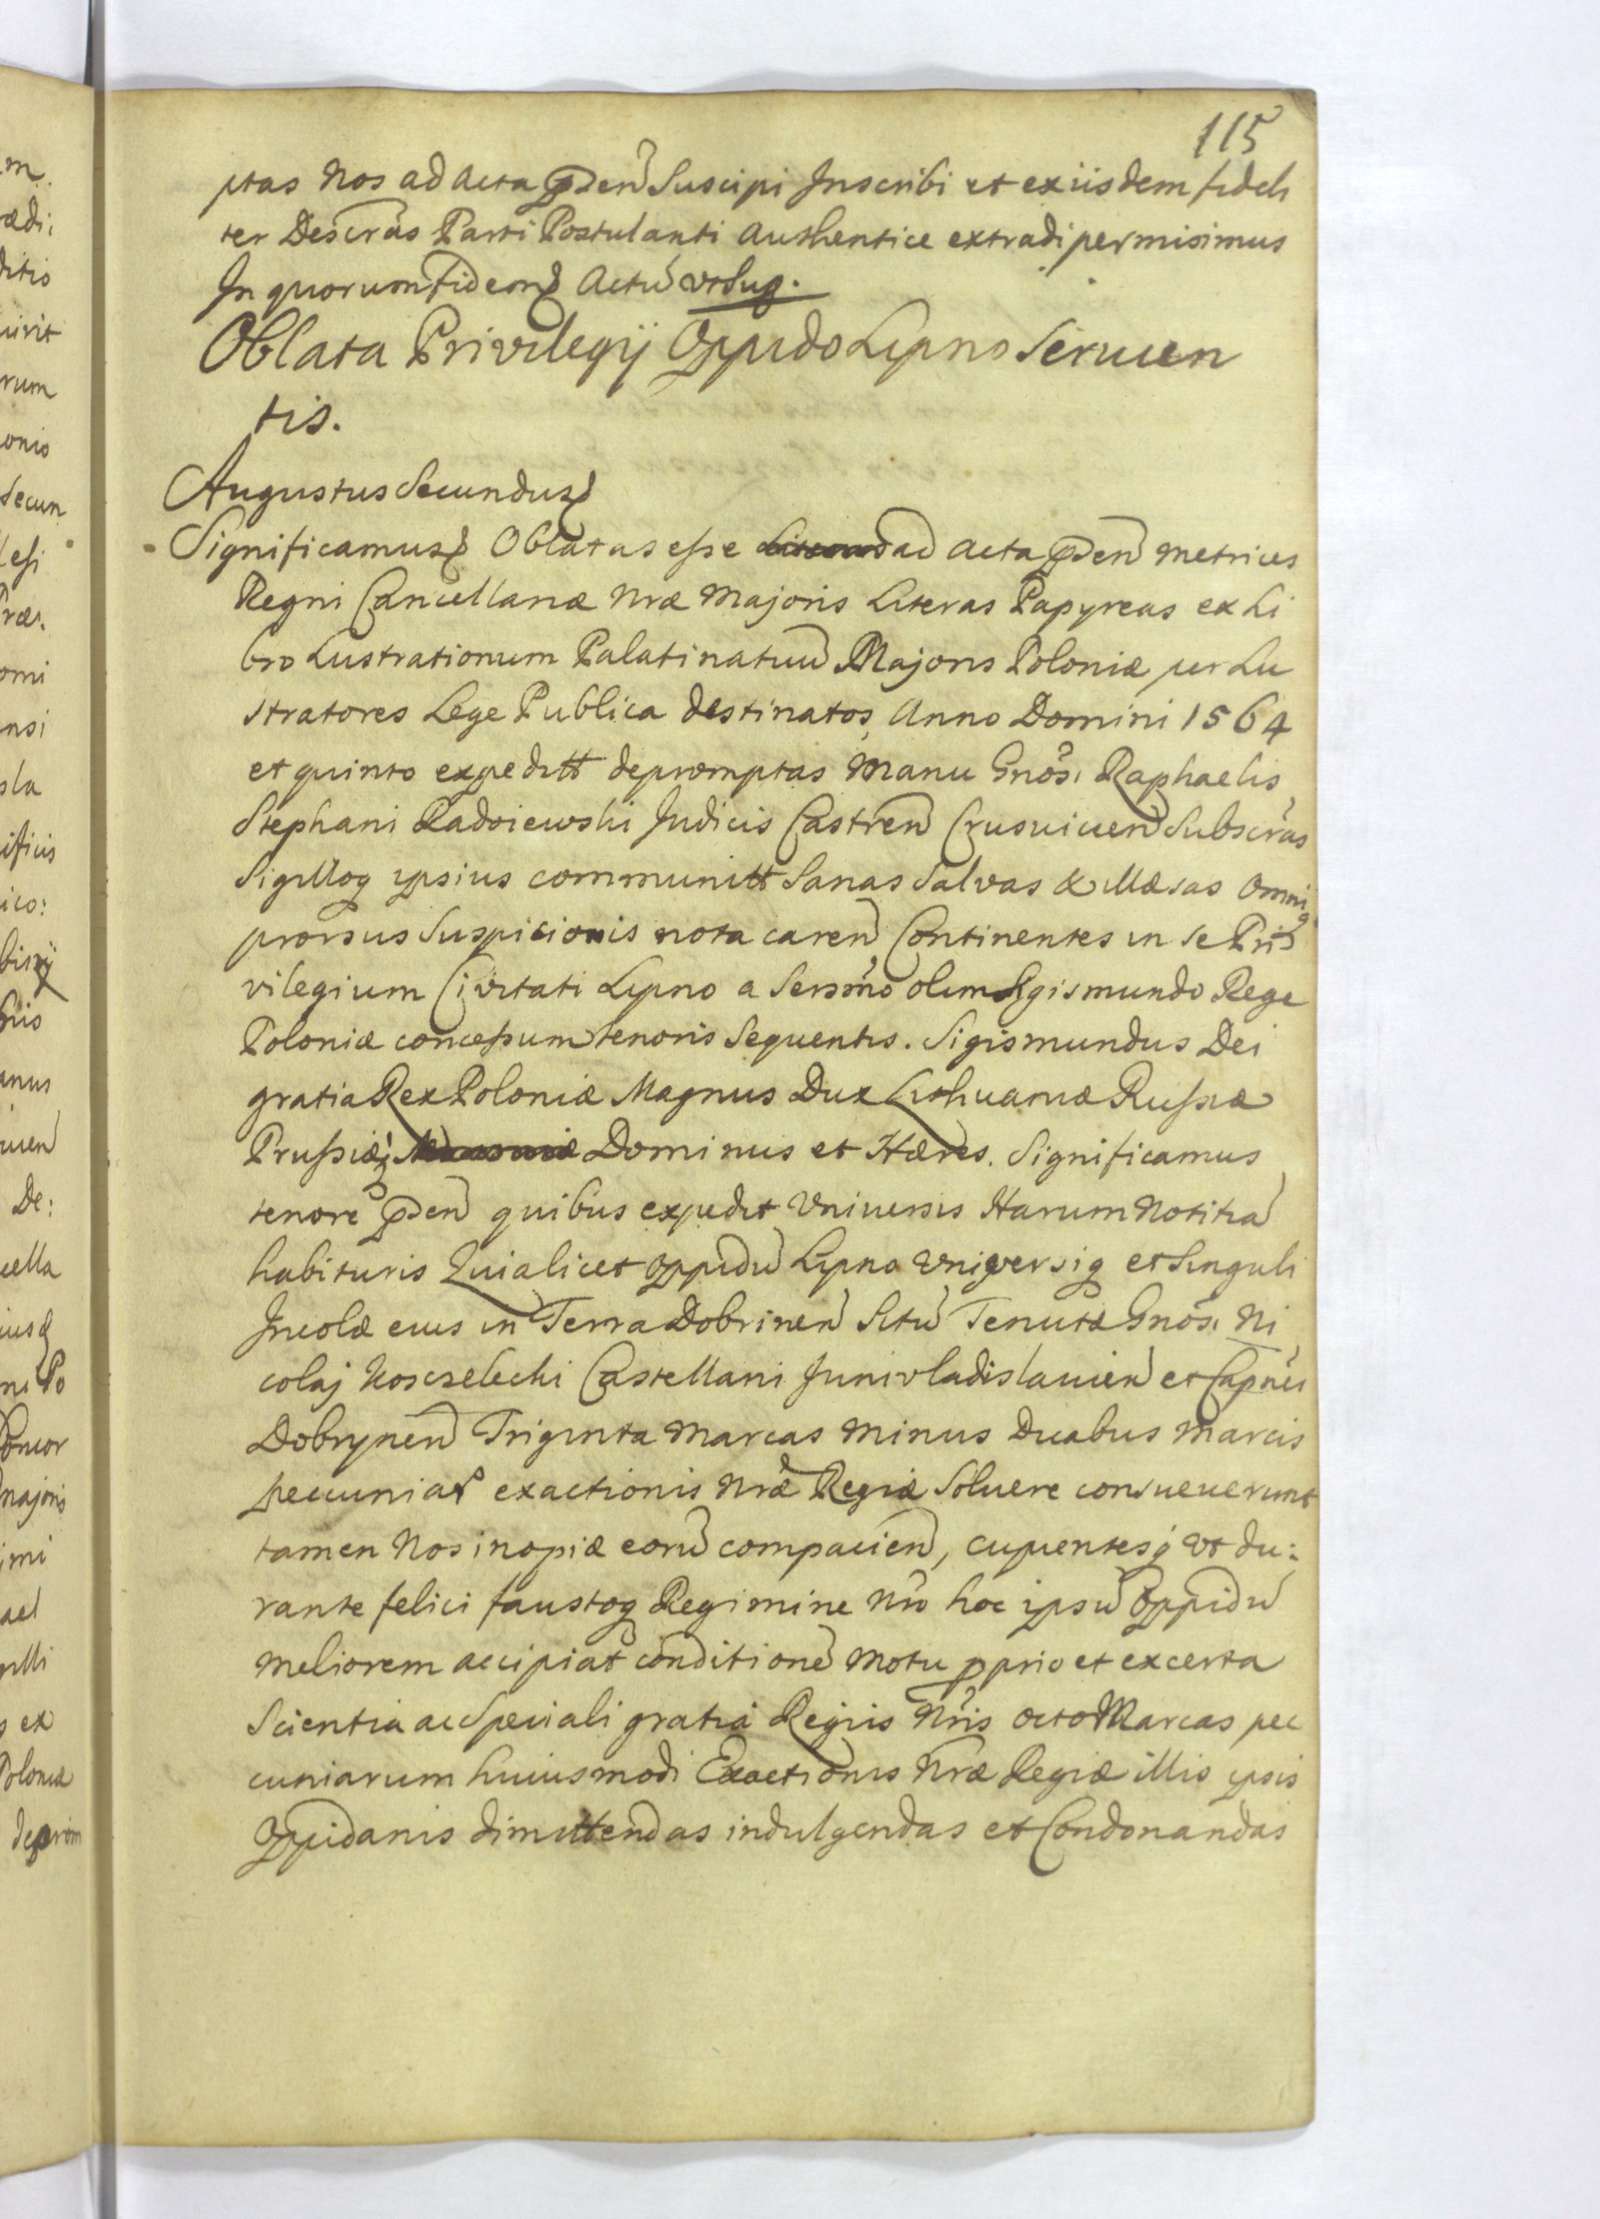 115
ptas Nos ad Acta pñden Suscipi Inscribi et ex iisdem fideli
ter Descrãs Parti Postulanti Authentice extradi permisimus
In quorum fidem Actũ ut Suq.
Oblata Privilegij Oppido Lipno Seruien
tis.
Augustus Secundus
Significamus Oblatas esse ad Acta pñden Metrices
Regni Cancellariæ Nræ Majoris Literas Papyreas ex Li
bro Lustrationum Palatinatuũ Majoris Poloniæ per Lu
stratores Lege Publica destinatos, Anno Domini 1564
et quinto expeditt depromptas Manu Gnõsi Raphaelis
Stephani Radoiewski Iudicis Castren Crusvicien Subscrãs
Sigilloq ipsius communitt Sanas Salvas & Illæsas Omniq
prorsus Suspicionis nota caren Continentes in se Pri
vilegium Civitati Lipno a Sermõ olim Sigismundo Rege
Poloniæ concessum tenoris Sequentis. Sigismundus Dei
gratia Rex Poloniæ Magnus Dux Lithuaniæ Russiæ
Prussiæ Dominus et Hæres. Significamus
tenore pñden quibus expedit Universis Harum Notitiã
habituris Quia licet Oppidũ Lipno Universiq et Singuli
Incolæ eius in Terra Dobrinen Sitũ Tenutæ Gnõsi Ni
colaj Koscielecki Castellani Junivladislauien et Capnei
Dobrynen Triginta Marcas Minus Duabus Marcis
peccuniar exactionis Nræ Regiæ Soluere consueuerunt
tamen Nos inopiæ eorũ compacien, cupientesq ut du:
rante felici faustoq Regimine Nrõ hoc ipsũ Oppidũ
Meliorem accipiat conditionẽ Motu pprio et ex certa
Scientia ac Speciali gratia Regiis Nris Octo Marcas pec
cuniarum huiusmodi Exactionis Nræ Regiæ illis ipsis
Oppidanis dimittendas indulgendas et Condonandas